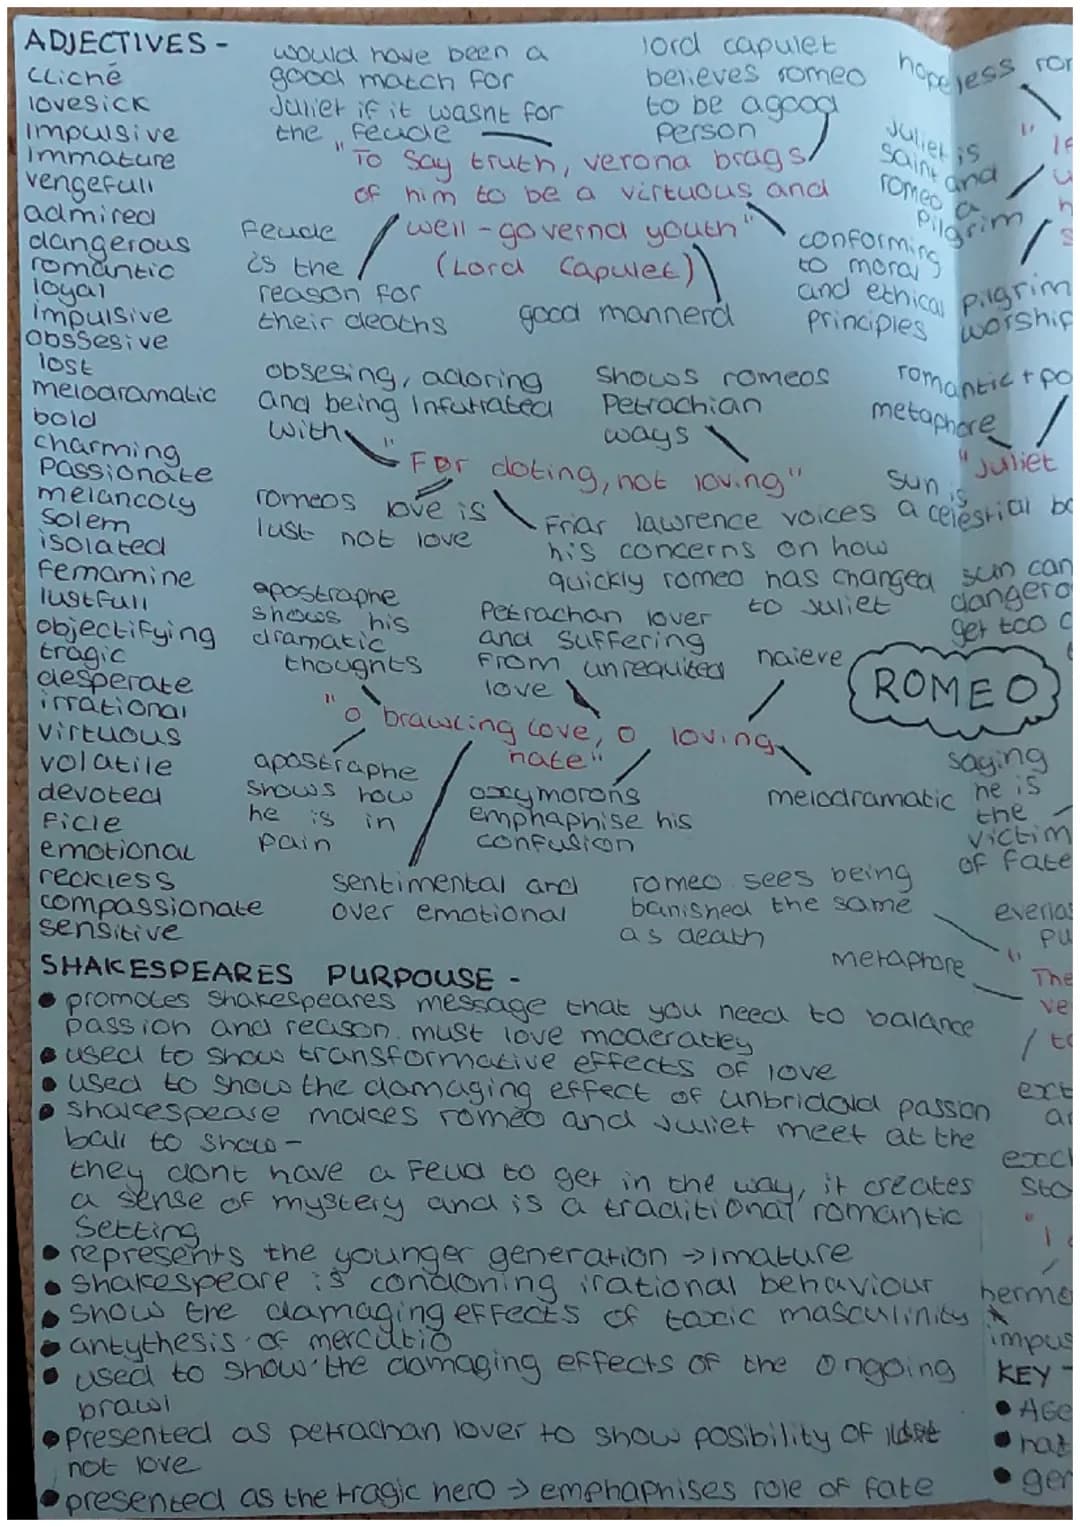 ADJECTIVES -
cliché
lovesick
impulsive
immature
vengefull
admired
dangerous
romantic
loyal
impulsive
obssesive
lost
melodramatic
bold
charming
passionate
melancoly
solem
isolated
femamine
lustfull
objectifying
tragic
desperate
irrational
virtuous
volatile
devoted
ficle
emotional
reckless
compassionate
sensitive
would have been a
good match for
Juliet if it wasnt for
the feude
lord capulet
believes romeo
to be a good
person
"To say truth, verona brags
of him to be a virtuous and
well-governd youth"
(Lord Capulet)
feude
is the
reason for
their deaths
good mannerd
conforming
to moral
and ethical
principles
hopeless ror
Juliet is
saint and
romeo a
pilgrim
" If
u
h
s
pilgrim
worship
obsesing, adoring
and being infutrated
with
shows romeos
Petrachian
ways
"For doting, not loving"
romeos love is
lust not love
Friar lawrence voices
his concerns on how
quickly romeo has changed
to Juliet
romantic + po
metaphore
"Juliet
sun is
a celestial bo
sun can
dangero
get too c
t
apostraphe
shows his
dramatic
thoughts
Petrachan lover
and suffering
from unrequited
love
naieve
"o brawling love, o loving
hate"
apostraphe
shows how
he is in
pain
oxymorons
emphaphise his
confusion
melodramatic
sentimental and
over emotional
ROMEO
saying
he is
the
victim
of fate
romeo sees being
banished the same
as death
metaphore
everlas
pu
" The
ve
to
ext
a
excl
sto
" I
herme
impus
SHAKESPEARES PURPOUSE -
• promotes shakespeares message that you need to balance
passion and reason. must love moderatley
• used to show transformative effects of love
• used to show the damaging effect of unbridald passion
• shakespeare makes romeo and Juliet meet at the
ball to show -
they dont have a feud to get in the way, it creates
a sense of mystery and is a traditional romantic
setting
• represents the younger generation → imature
• shakespeare is condoning irational behaviour
• show the damaging effects of toxic masculinity
• antythesis of mercutio
• used to show the damaging effects of the ongoing
brawl
• presented as petrachan lover to show posibility of lust
not love
• presented as the tragic hero → emphaphises role of fate
KEY -
• Age
• nat
• ger